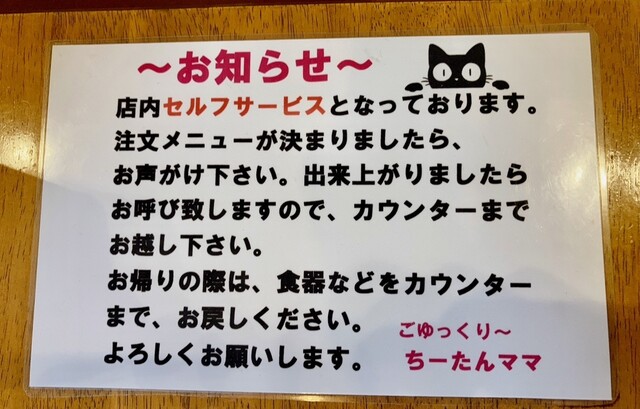 〜お知らせ〜
店内セルフサービスとなっております。
注文メニューが決まりましたら、
お声がけ下さい。出来上がりましたら
お呼び致しますので、カウンターまで
お越し下さい。
お帰りの際は、食器などをカウンター
まで、お戻しください。
よろしくお願いします。
ごゆっくり〜
ちーたんママ